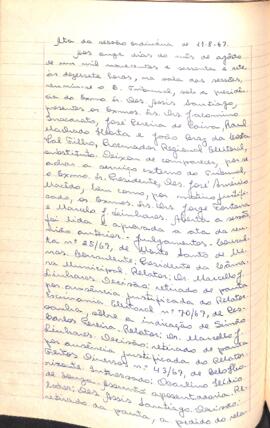 Ata da sessão ordinária de 11-8-67.
Aos onze dias do mês de agôsto
de um mil novecentos e sessenta e sete,
às dezessete horas, na sala das sessões,
reuniu-se o E. Tribunal, sob a presidên-
cia do Exmo Sr. Des. Jessis Santiago,
presentes os Exmos Srs. Drs. Jacomino
Inacarato, José Pereira de Paiva, Raul
Machado Horta e João Braz da Costa
Val Filho, Procurador Regional Eleitoral,
substituto. Deixou de comparecer, por se
achar a serviço externo do Tribunal,
o Exmo Sr. Presidente, Des. José Américo
Macêdo, bem como por motivo justifi-
cado, os Exmos. Srs. Drs. Jorge Fontana
e Marcelo J. Linhares. Aberta a sessão
foi lida e aprovada a ata da reu-
nião anterior. Julgamentos: Consul-
ta nº 25/67, de Monte Santo de Mi-
nas. Consulente: Presidente da Câma-
ra Municipal. Relator: Dr. Marcello J.
Linhares. Decisão: retirado de pauta
por ausência justificada do Relator.
Escrivania Eleitoral nº 70/67, de Pes-
sobre a indicação de Simão
Carlos Pereira. Relator: Dr. Marcello J.
Linhares. Decisão: retirado de pauta
por ausência justificada do Relator.
Feitos Diversos nº 43/67, de Belo Ho-
rizonte. Interessado:
de Souza. Assunto: aposentadoria. Re-
lator: Des. Jessis Santiago. Decisão:
retirado da pauta, a pedido do rela-